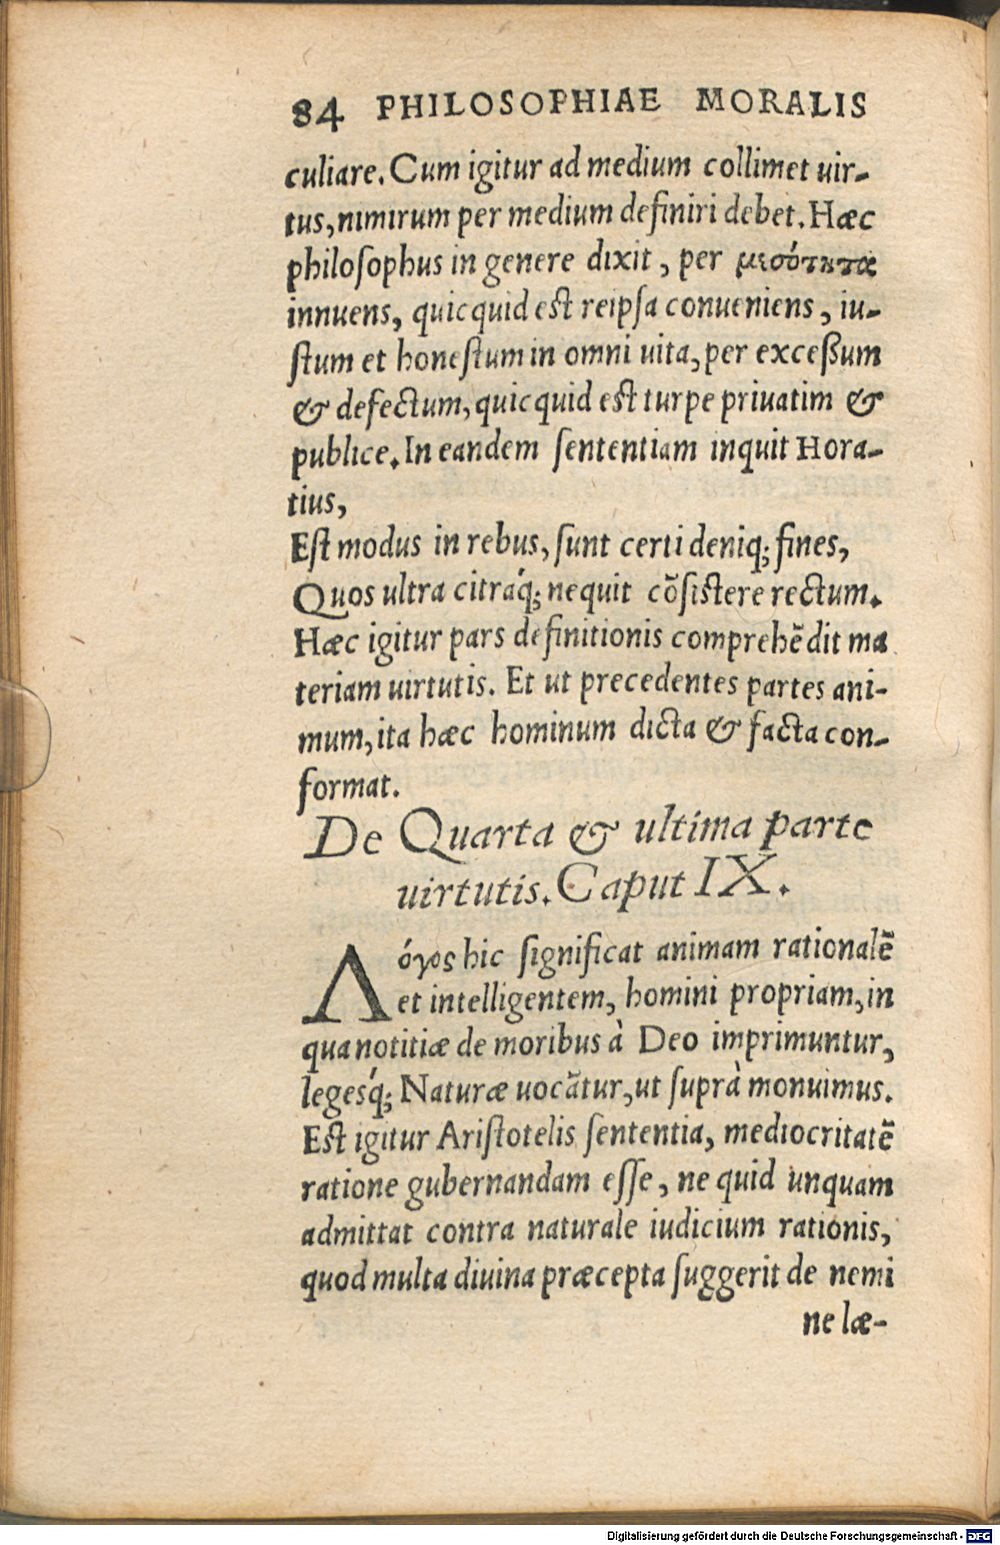 84 PHILOSOPHIAE MORALIS
culiare. Cum igitur ad medium collimet uir-
tus, nimirum per medium definiri debet. Hæc
philoſophus in genere dixit, per μεσότητα
innuens, quicquid eſt reipſa conueniens, iu-
ſtum et honeſtum in omni uita, per exceßum
& defectum, quicquid eſt turpe priuatim &
publice. In eandem ſententiam inquit Hora-
tius,
Eſt modus in rebus, ſunt certi deniq; fines,
Quos ultra citráq; nequit cõſiſtere rectum.
Hæc igitur pars definitionis comprehẽdit ma
teriam uirtutis. Et ut precedentes partes ani-
mum, ita hæc hominum dicta & facta con-
format.
De Quarta & ultima parte
uirtutis. Caput IX.
Λόγος hic ſignificat animam rationalẽ
et intelligentem, homini propriam, in
qua notitiæ de moribus à Deo imprimuntur,
legesq́; Naturæ uocãtur, ut ſuprà monuimus.
Eſt igitur Ariſtotelis ſententia, mediocritatẽ
ratione gubernandam eſſe, ne quid unquam
admittat contra naturale iudicium rationis,
quod multa diuina præcepta ſuggerit de nemi
ne læ-
Digitalisierung gefördert durch die Deutsche Forschungsgemeinschaft - DFG